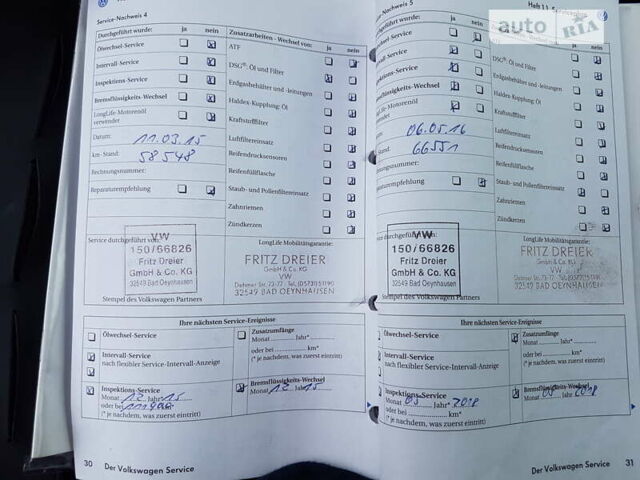 Service-Nachweis 4
Durchgeführt wurde: ja nein
Ölwechsel-Service
Intervall-Service
Inspektions-Service
Bremsflüssigkeits-Wechsel
LongLife-Motorenöl
verwendet
Datum:
11.03.15
km-Stand:
58548
Rechnungsnummer:
Reparaturempfehlung
Service durchgeführt von:
VW
150/66826
Fritz Dreier
GmbH & Co. KG
32549 Bad Oeynhausen
Stempel des Volkswagen Partners
Zusatzarbeiten - Wechsel von: ja nein
ATF
DSG®-Öl und Filter
Erdgasbehälter und -leitungen
Haldex-Kupplung: Öl
Kraftstofffilter
Luftfiltereinsatz
Reifendrucksensoren
Reifenfüllflasche
Staub- und Pollenfiltereinsatz
Zahnriemen
Zündkerzen
LongLife Mobilitätsgarantie:
FRITZ DREIER
GmbH & Co. KG
VW
Dehmer Str. 73-77 · Tel. (05731) 51190
32549 BAD OEYNHAUSEN
Ihre nächsten Service-Ereignisse
Ölwechsel-Service
Intervall-Service
nach flexibler Service-Intervall-Anzeige
Inspektions-Service
Monat 12 Jahr* 15
oder bei
(* je nachdem, was zuerst eintritt)
Zusatzumfänge
Monat Jahr*
oder bei km*
(* je nachdem, was zuerst eintritt)
Bremsflüssigkeits-Wechsel
Monat 12 Jahr 15
30 Der Volkswagen Service
Service-Nachweis 5
Heft 1.1 Serviceplan
auto RIA
Durchgeführt wurde: ja nein
Ölwechsel-Service
Intervall-Service
Inspektions-Service
Bremsflüssigkeits-Wechsel
LongLife-Motorenöl
verwendet
Datum:
06.05.16
Stand:
66551
Rechnungsnummer:
Reparaturempfehlung
Service durchgeführt von:
VW
150/66826
Fritz Dreier
GmbH & Co. KG
32549 Bad Oeynhausen
Stempel des Volkswagen Partners
nein
DSG®-Öl und Filter
Erdgasbehälter und -leitungen
Haldex-Kupplung: Öl
Kraftstofffilter
Luftfiltereinsatz
Reifendrucksensoren
Reifenfüllflasche
Staub- und Pollenfiltereinsatz
Zahnriemen
Zündkerzen
LongLife Mobilitätsgarantie:
FRITZ DREIER
GmbH & Co. KG
VW
32549 BAD OEYNHAUSEN
Ihre nächsten Service-Ereignisse
Ölwechsel-Service
Intervall-Service
nach flexibler Service-Intervall-Anzeige
Inspektions-Service
Monat 05 Jahr* 2018
oder bei km*
(* je nachdem, was zuerst eintritt)
Zusatzumfänge
Monat Jahr*
oder bei km*
(* je nachdem, was zuerst eintritt)
Bremsflüssigkeits-Wechsel
Monat 05 Jahr 2018
Der Volkswagen Service 31